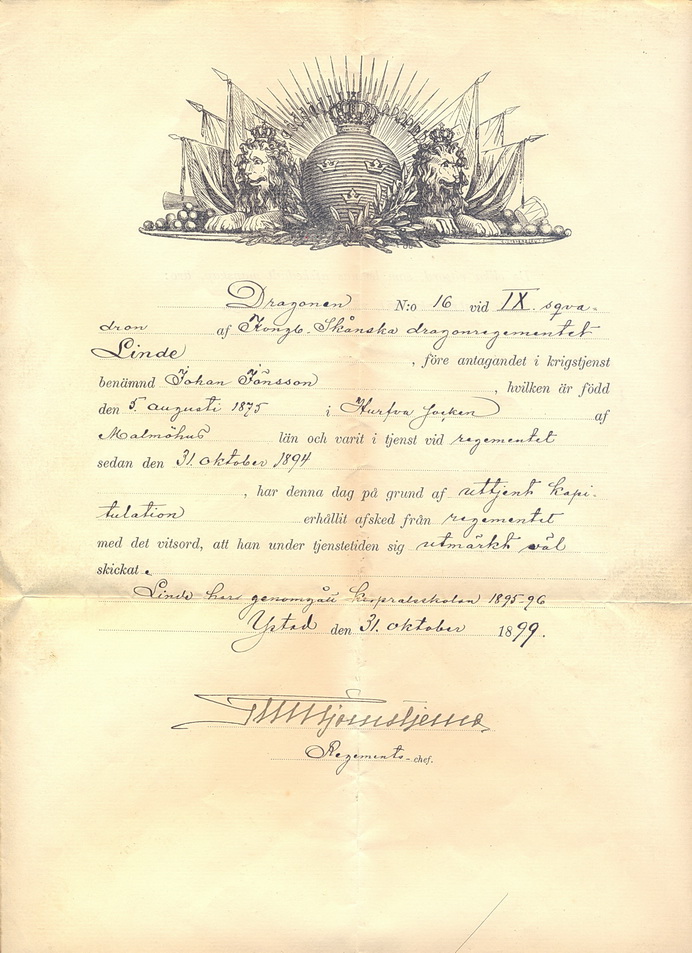 Dragonen N:o 16 vid IX. sqva-
dron af Kongl. Skånska dragonregementet
Linde , före antagandet i krigstjenst
benämnd Johan Jönsson , hvilken är född
den 5. augusti 1875 i Hurfva socken af
Malmöhus län och varit i tjenst vid regementet
sedan den 31. oktober 1894
, har denna dag på grund af uttjent kapi-
tulation erhållit afsked från regementet
med det vitsord, att han under tjenstetiden sig utmärkt väl
skickat.
Linde har genomgått korpralsskolan 1895-96
Ystad den 31. oktober 1899.
Regements-chef.